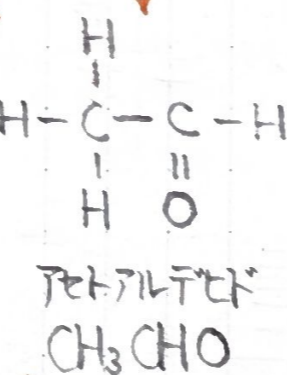 H
H-C-C-H
H O
アセトアルデヒド
CH₃CHO